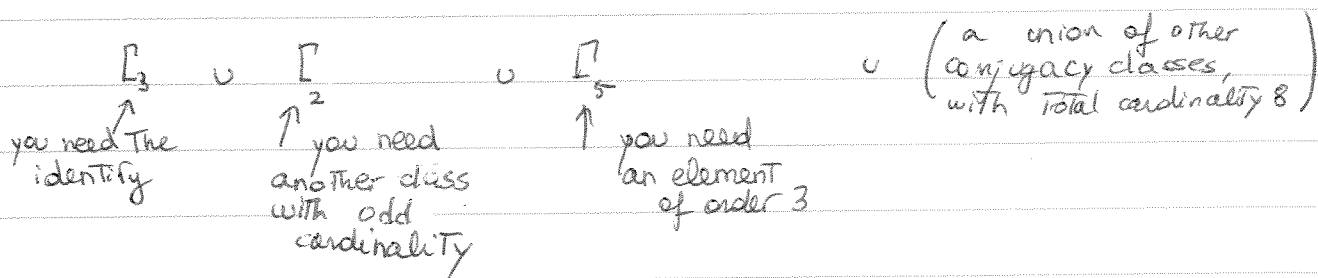 [₃ ∪ [₂ ∪ [₅ ∪ ( a union of other
conjugacy classes,
with total cardinality 8 )
↑ you need the
identity
↑ you need
another class
with odd
cardinality
↑ you need
an element
of order 3